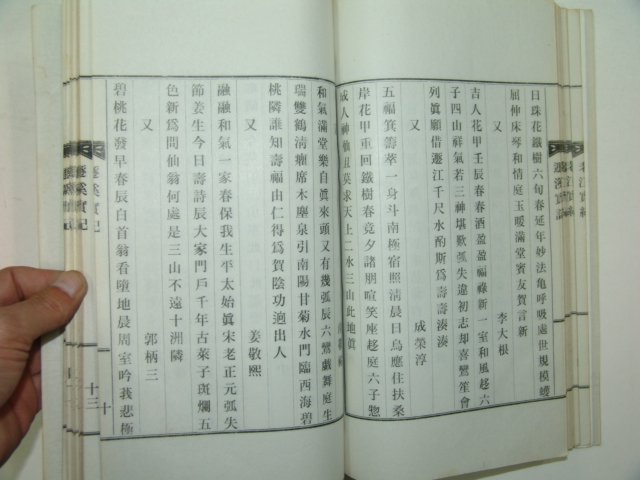 日珠花鐵樹六旬春延年妙法龜呼吸處世規模蠖
屈伸床琴和情庭玉暖滿堂賓友賀言新
又 李大根
吉人花甲壬辰春春酒盈盈福祿新一室和風趍六
子四山祥氣若三神堪歎弧矢違初志却喜鸞笙會
列眞願借蓬江千尺水酌斯爲壽壽湊湊
又 成榮淳
五福箕籌萃一身斗南極宿照淸晨日烏應住扶桑
岸花甲重回鐵樹春竟夕諸朋喧笑座趍庭六子惣
成人神仙且莫求天上二水三山此地眞
和氣滿堂樂自眞來頭又有幾弧辰六鸞戲舞庭生
瑞雙鶴淸癯席木塵泉引南陽甘菊水門臨西海碧
桃隣誰知壽福由仁得爲賀陰功逈出人
又 姜敬熙
融融和氣一家春保我生平太始眞宋老正元弧矢
節姜生今日壽詩辰大家門戶千年古萊子斑爛五
色新爲問仙翁何處是三山不遠十洲隣
又 郭柄三
碧桃花發早春辰白首翁看墮地晨周室吟我悲極
實記
十三